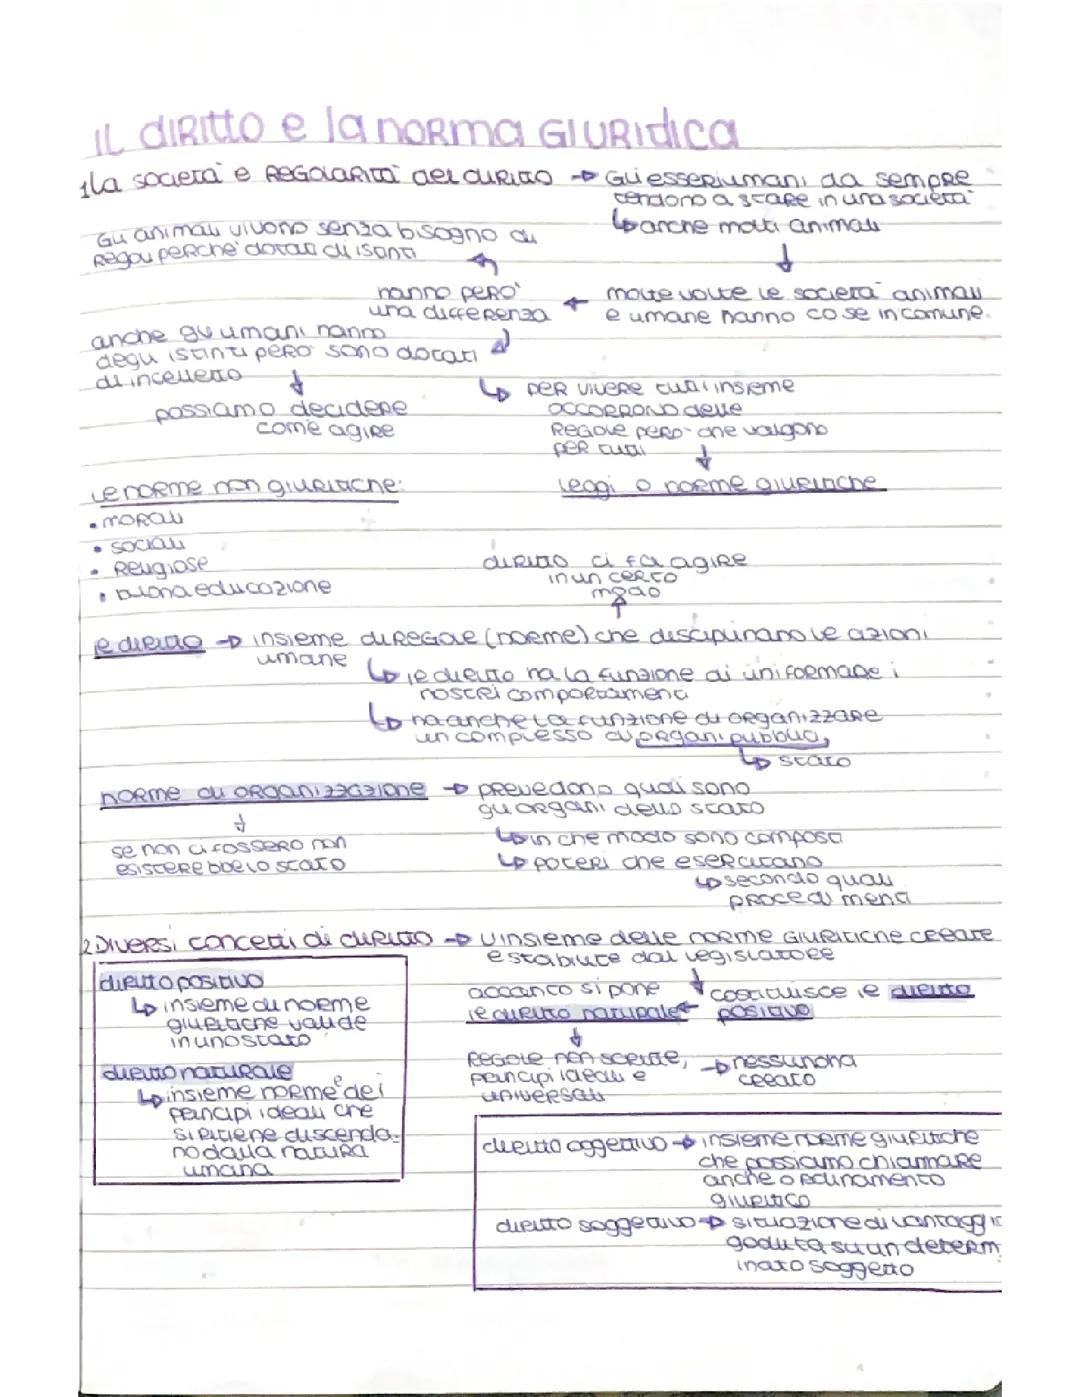 IL diRitto e la noRma GIURidica
1 La società e REGOLARITà del diRitto → Gli esseri umani da sempre
tendono a stare in una società
↳ anche molti animali
Gli animali vivono senza bisogno di
Regole perchè dotati di istinti
hanno però
una differenza
← molte volte le società animali
e umane hanno cose in comune.
anche gli umani hanno
degli istinti però sono dotati
di intelletto
possiamo decidere
come agire
↳ per vivere tutti insieme
occorrono delle
Regole però che valgono
per tutti
Le norme non giuridiche:
• morali
• sociali
• Religiose
• buona educazione
Leggi o norme giuridiche
diritto ci fa agire
in un certo
modo
il diritto → insieme di regole (norme) che disciplinano le azioni
umane
↳ il diritto ha la funzione di uniformare i
nostri comportamenti
↳ ha anche la funzione di organizzare
un complesso di organi pubblici
↳ stato
norme di organizzazione → prevedono quali sono
gli organi dello stato
se non ci fossero non
esisterebbe lo stato
↳ in che modo sono composti
↳ poteri che esercitano
↳ secondo quali
procedimenti
2 Diversi concetti di diritto → L'insieme delle norme giuridiche create
e stabilite dal legislatore
diritto positivo
↳ insieme di norme
giuridiche valide
in uno stato
diritto naturale
↳ insieme norme e dei
principi ideali che
si ritiene discenda-
no dalla natura
umana
accanto si pone
il diritto naturale ←
costituisce il diritto
positivo
Regole non scritte,
principi ideali e
universali
→ nessuno ha
creato
diritto oggettivo → insieme norme giuridiche
che possiamo chiamare
anche ordinamento
giuridico
diritto soggettivo → situazione di vantaggio
goduta su un determ
inato soggetto